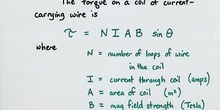 The torque on a coil of current-
carrying wire is
τ = N I A B sin θ
where
N = number of loops of wire
in the coil
I = current through coil (amps)
A = area of coil (m²)
B = mag field strength (Tesla)